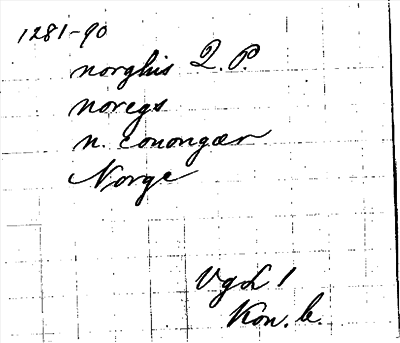 1281-90
norghis Q. P.
noregs
n. conongær
Norge
VgL 1
Kon. b.